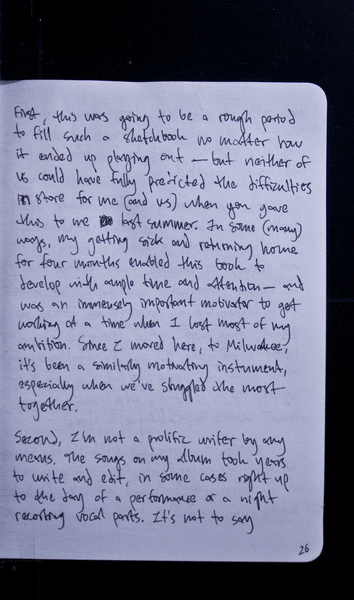 First, this was going to be a rough period
to fill such a sketchbook no matter how
it ended up playing out — but neither of
us could have fully predicted the difficulties
in store for me (and us) when you gave
this to me last summer. In some (many)
ways, my getting sick and returning home
for four months enabled this book to
develop with ample time and attention — and
was an immensely important motivator to get
working at a time when I lost most of my
ambition. Since I moved here, to Milwaukee,
it's been a similarly motivating instrument,
especially when we've struggled the most
together.
Second, I'm not a prolific writer by any
means. The songs on my album took years
to write and edit, in some cases right up
to the day of a performance or a night
recording vocal parts. It's not to say
26